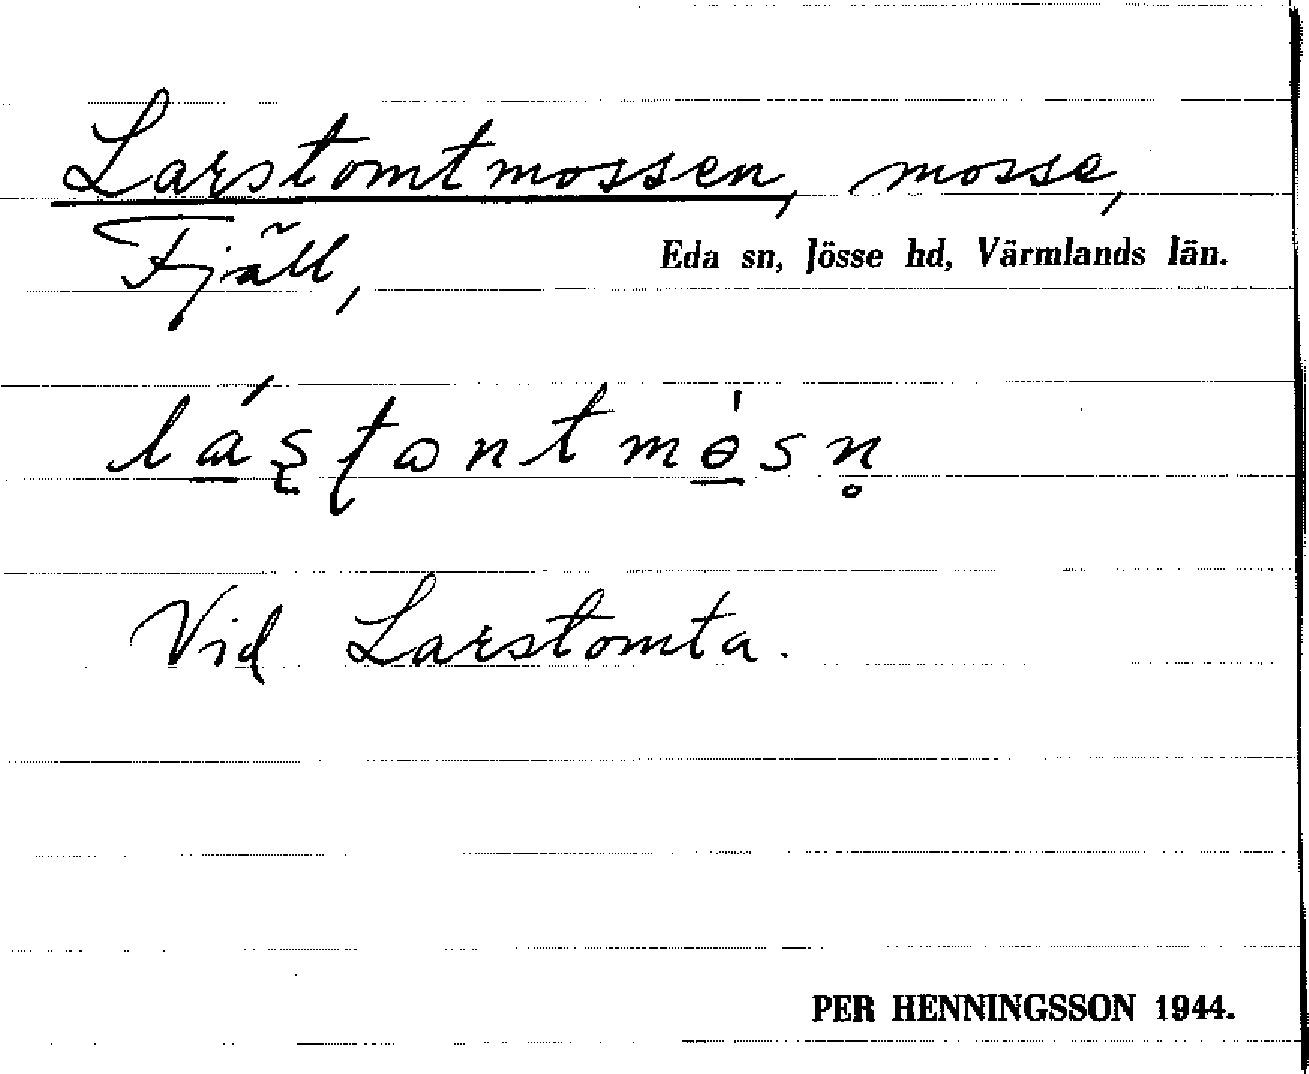 Larstomtmossen, mosse,
Fjäll, Eda sn, Jösse hd, Värmlands län.
Vid Larstomta.
PER HENNINGSSON 1944.